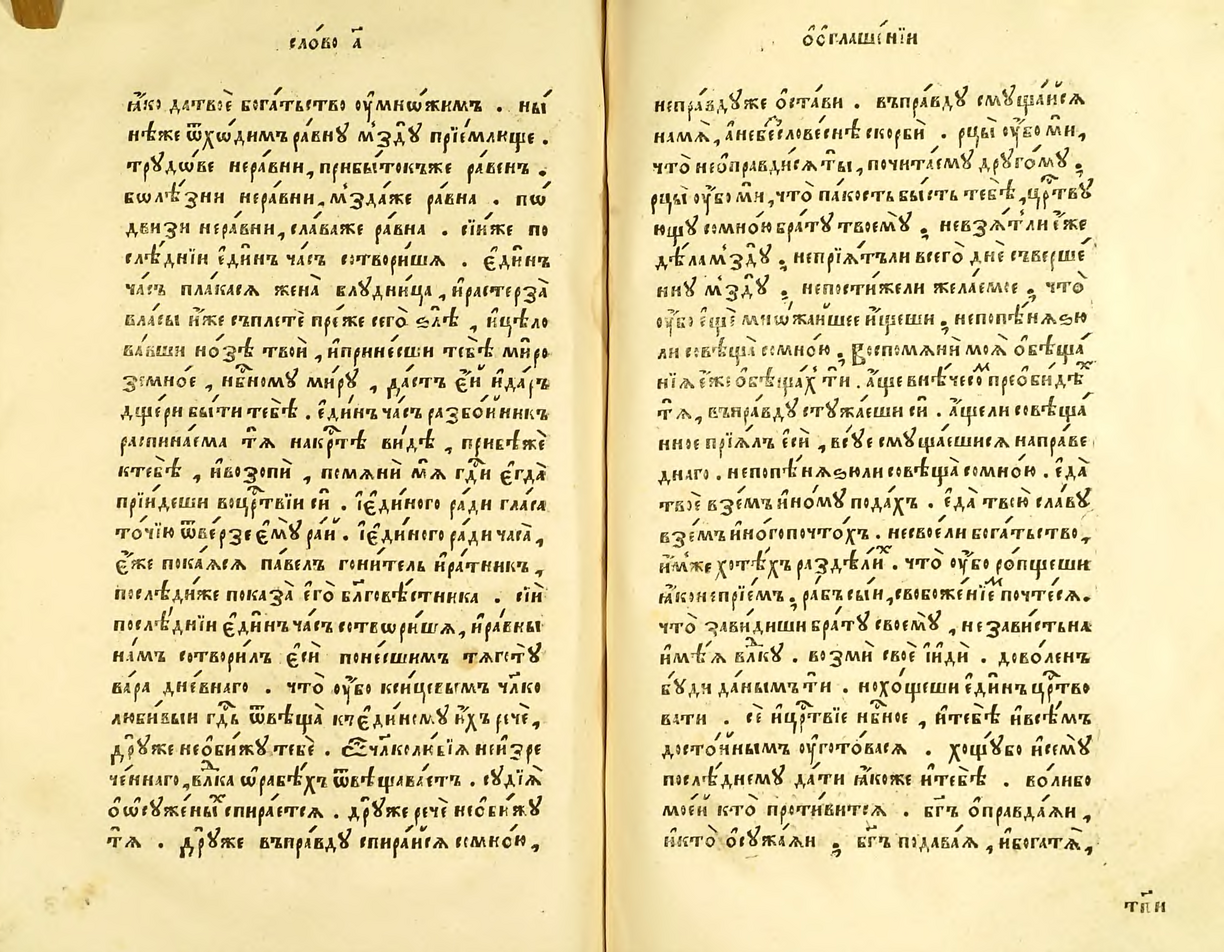 сло́во а҃
ꙗ҆́ко датвоѐ бога́тьство ᲂу҆мнѡ́жимъ . ны́
нѣже ѿхѡ́димъ ра́внꙋ м̾здꙋ̀ прїе́млюще .
трꙋдѡ́ве нера́вни, прибы́токъже ра́венъ .
бѡлѣ́зни нера́вни, м̾зда́же ра́вна . по́
двизи нера́вни, сла́важе ра́вна . сі́иже по
слѣ́днїи є҆ди́нъ ча́съ сотвори́шѧ . є҆ди́нъ
ча́съ пла́касѧ жена̀ блꙋдни́ца , и҆растерза̀
вла́сы и҆́же съплетѐ пре́же сего̀ ѕлѣ̀ , и҆цѣло
ва́вши но́зѣ твои̑ , и҆прине́сши тебѣ̀ мѵ́ро
земно́е , нб҃номꙋ ми́рꙋ , да́стъ є҆́й и҆да́ръ
дще́ри бы́ти тебѣ̀ . є҆ди́нъ ча́съ разбо́йникъ
распина́ема тѧ̀ накртⷭ҇ѣ̀ ви́дѣ , прибѣ́же
ктебѣ̀ , и҆возопѝ , помѧнѝ мѧ̀ гдⷭ҇и є҆гда̀
прїи́деши воцр҃твїи сѝ . і҆є҆ди́ного ра́ди гла́са
то́чїю ѿве́рзе є҆мꙋ̀ ра́й . і҆є҆ди́ного ра́ди часа̀ ,
є҆́же пока́ѧсѧ па́велъ гони́тель и҆ра́тникъ ,
послѣ́диже показа̀ є҆го̀ бл҃говѣ́стника . сі́й
послѣ́днїи є҆ди́нъ ча́съ сотвѡри́шѧ, и҆ра́вны
на́мъ сотвори́лъ є҆сѝ поне́сшимъ тѧготꙋ̀
ва́ра дне́внаго . что̀ ᲂу҆̀бо конце́вымъ чл҃ко
люби́выи гдⷭ҇ь ѿвѣща̀ къє҆ди́номꙋ и҆́хъ речѐ ,
дрꙋ́же необи́жꙋ тебѐ . Ѽ чл҃колю́бїѧ неи́зре
че́ннаго, влⷣка ѡ҆рабѣ́хъ ѿвѣщава́етъ . сꙋдїѧ̀
ѻ҆ѡ҆сꙋже́ныⷯ спира́етсѧ . дрꙋ́же речѐ необи́жꙋ
тѧ̀ . дрꙋ́же въпра́вдꙋ спира́йсѧ сомно́ю ,
ѡ҆ согла́шенїи
непра́вдꙋже ѻ҆ста́ви . въпра́вдꙋ смꙋща́исѧ
намѧ̀ , а҆небесло́веснѣ скорбѝ . рцы̀ ᲂу҆̀бо мѝ ,
что̀ неѻ҆правди́сѧ ты̀ , почита́емꙋ дрꙋго́мꙋ ;
рцы̀ ᲂу҆̀бо мѝ , что̀ па́кость бы́сть тебѣ̀ , цр҃твꙋ
ющꙋ сомно́ю бра́тꙋ твоемꙋ̀ ; невзѧ́тли є҆́же
дѣ́ла м̾здꙋ̀ ; непрїѧ́тъли всего̀ днѐ съверше́
ннꙋ м̾здꙋ̀ ; непости́жели жела́емое ; что̀
ᲂу҆̀бо є҆щѐ мнѡ́жаишее и҆́щеши ; непопѣ́нѧѕю
ли совѣща̀ сомно́ю ; воспомѧнѝ моѧ̀ ѻ҆бѣща́
нїѧ є҆́же ѻ҆бѣща́хъ тѝ . а҆́ще внѣче́соⷨ преоби́дѣⷯ
тѧ̀ , въпра́вдꙋ стꙋжа́еши сѝ . а҆́щели совѣща́
нное прїѧ́лъ є҆сѝ , всꙋ́е смꙋща́ешисѧ напра́ве
днаго . непопѣ́нѧѕюли совѣща̀ сомно́ю . є҆да̀
твоѐ взе́мъ и҆но́мꙋ пода́хъ . є҆да̀ твою̀ сла́вꙋ
взе́мъ и҆но́го почто́хъ . несвое́ли бога́тьство ,
и҆́мже хотѣ́хъ раздѣли́ⷯ . что̀ ᲂу҆̀бо ро́пщеши
ꙗ҆́конепрїе́мъ ; ра́бъ сы́и , свобоже́нїеⷨ почте́сѧ .
что̀ зави́диши бра́тꙋ своемꙋ̀ , неза́вистьна
и҆мѣ́ѧ влⷣкꙋ . возмѝ своѐ и҆и҆дѝ . дово́ленъ
бꙋ́ди да́нымъ тѝ . нохо́щеши є҆ди́нъ цр҃тво
вати . сѐ и҆цр҃твїе нб҃ное , и҆тебѣ̀ и҆всѣ́мъ
досто́йнымъ ᲂу҆гото́васѧ . хощꙋ́бо и҆семꙋ̀
послѣ́днемꙋ да́ти ꙗ҆́коже и҆тебѣ̀ . во́либо
мое́й кто̀ проти́витсѧ . бг҃ъ ѻ҆правда́ѧи ,
и҆кто̀ ѻ҆сꙋжа́ѧи ; бг҃ъ подава́ѧ , и҆богатѧ̀ ,
тпⷭ҇и